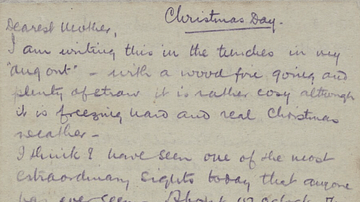 Christmas Day.
Dearest Mother,
I am writing this in the trenches in my
"dug out" - with a wood fire going and
plenty of straw it is rather cosy although
it is freezing hard and real Christmas
weather -
I think I have seen one of the most
extraordinary sights today that anyone
has ever seen - About 10 o'clock I